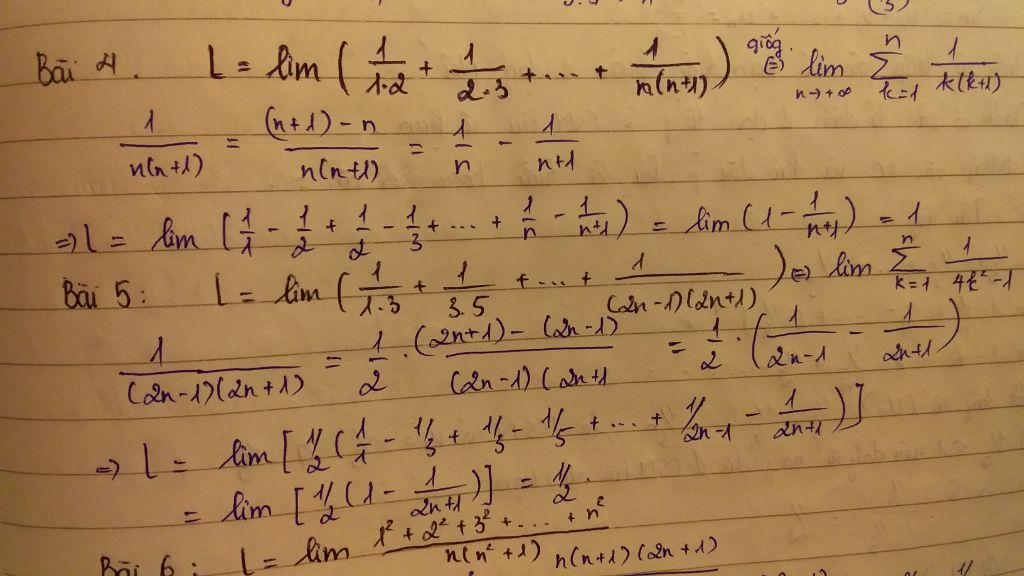 Bài 4. L = lim ( 1/(1·2) + 1/(2·3) + ... + 1/(n(n+1)) ) giống (=) lim n→+∞ ∑ k=1 n 1/(k(k+1))
1/(n(n+1)) = ((n+1) - n)/(n(n+1)) = 1/n - 1/(n+1)
=> L = lim ( 1/1 - 1/2 + 1/2 - 1/3 + ... + 1/n - 1/(n+1) ) = lim ( 1 - 1/(n+1) ) = 1
Bài 5 : L = lim ( 1/(1·3) + 1/(3.5) + ... + 1/((2n-1)(2n+1)) ) (=) lim ∑ k=1 n 1/(4k²-1)
1/((2n-1)(2n+1)) = 1/2 · ((2n+1) - (2n-1))/((2n-1)(2n+1 = 1/2 · ( 1/(2n-1) - 1/(2n+1) )
=> L = lim [ 1/2 ( 1/1 - 1/3 + 1/3 - 1/5 + ... + 1/2n-1 - 1/(2n+1) ) ]
= lim [ 1/2 ( 1 - 1/(2n+1) ) ] = 1/2 .
Bài 6 : L = lim (1² + 2² + 3² + ... + n²)/(n(n²+1)) n(n+1)(2n+1)